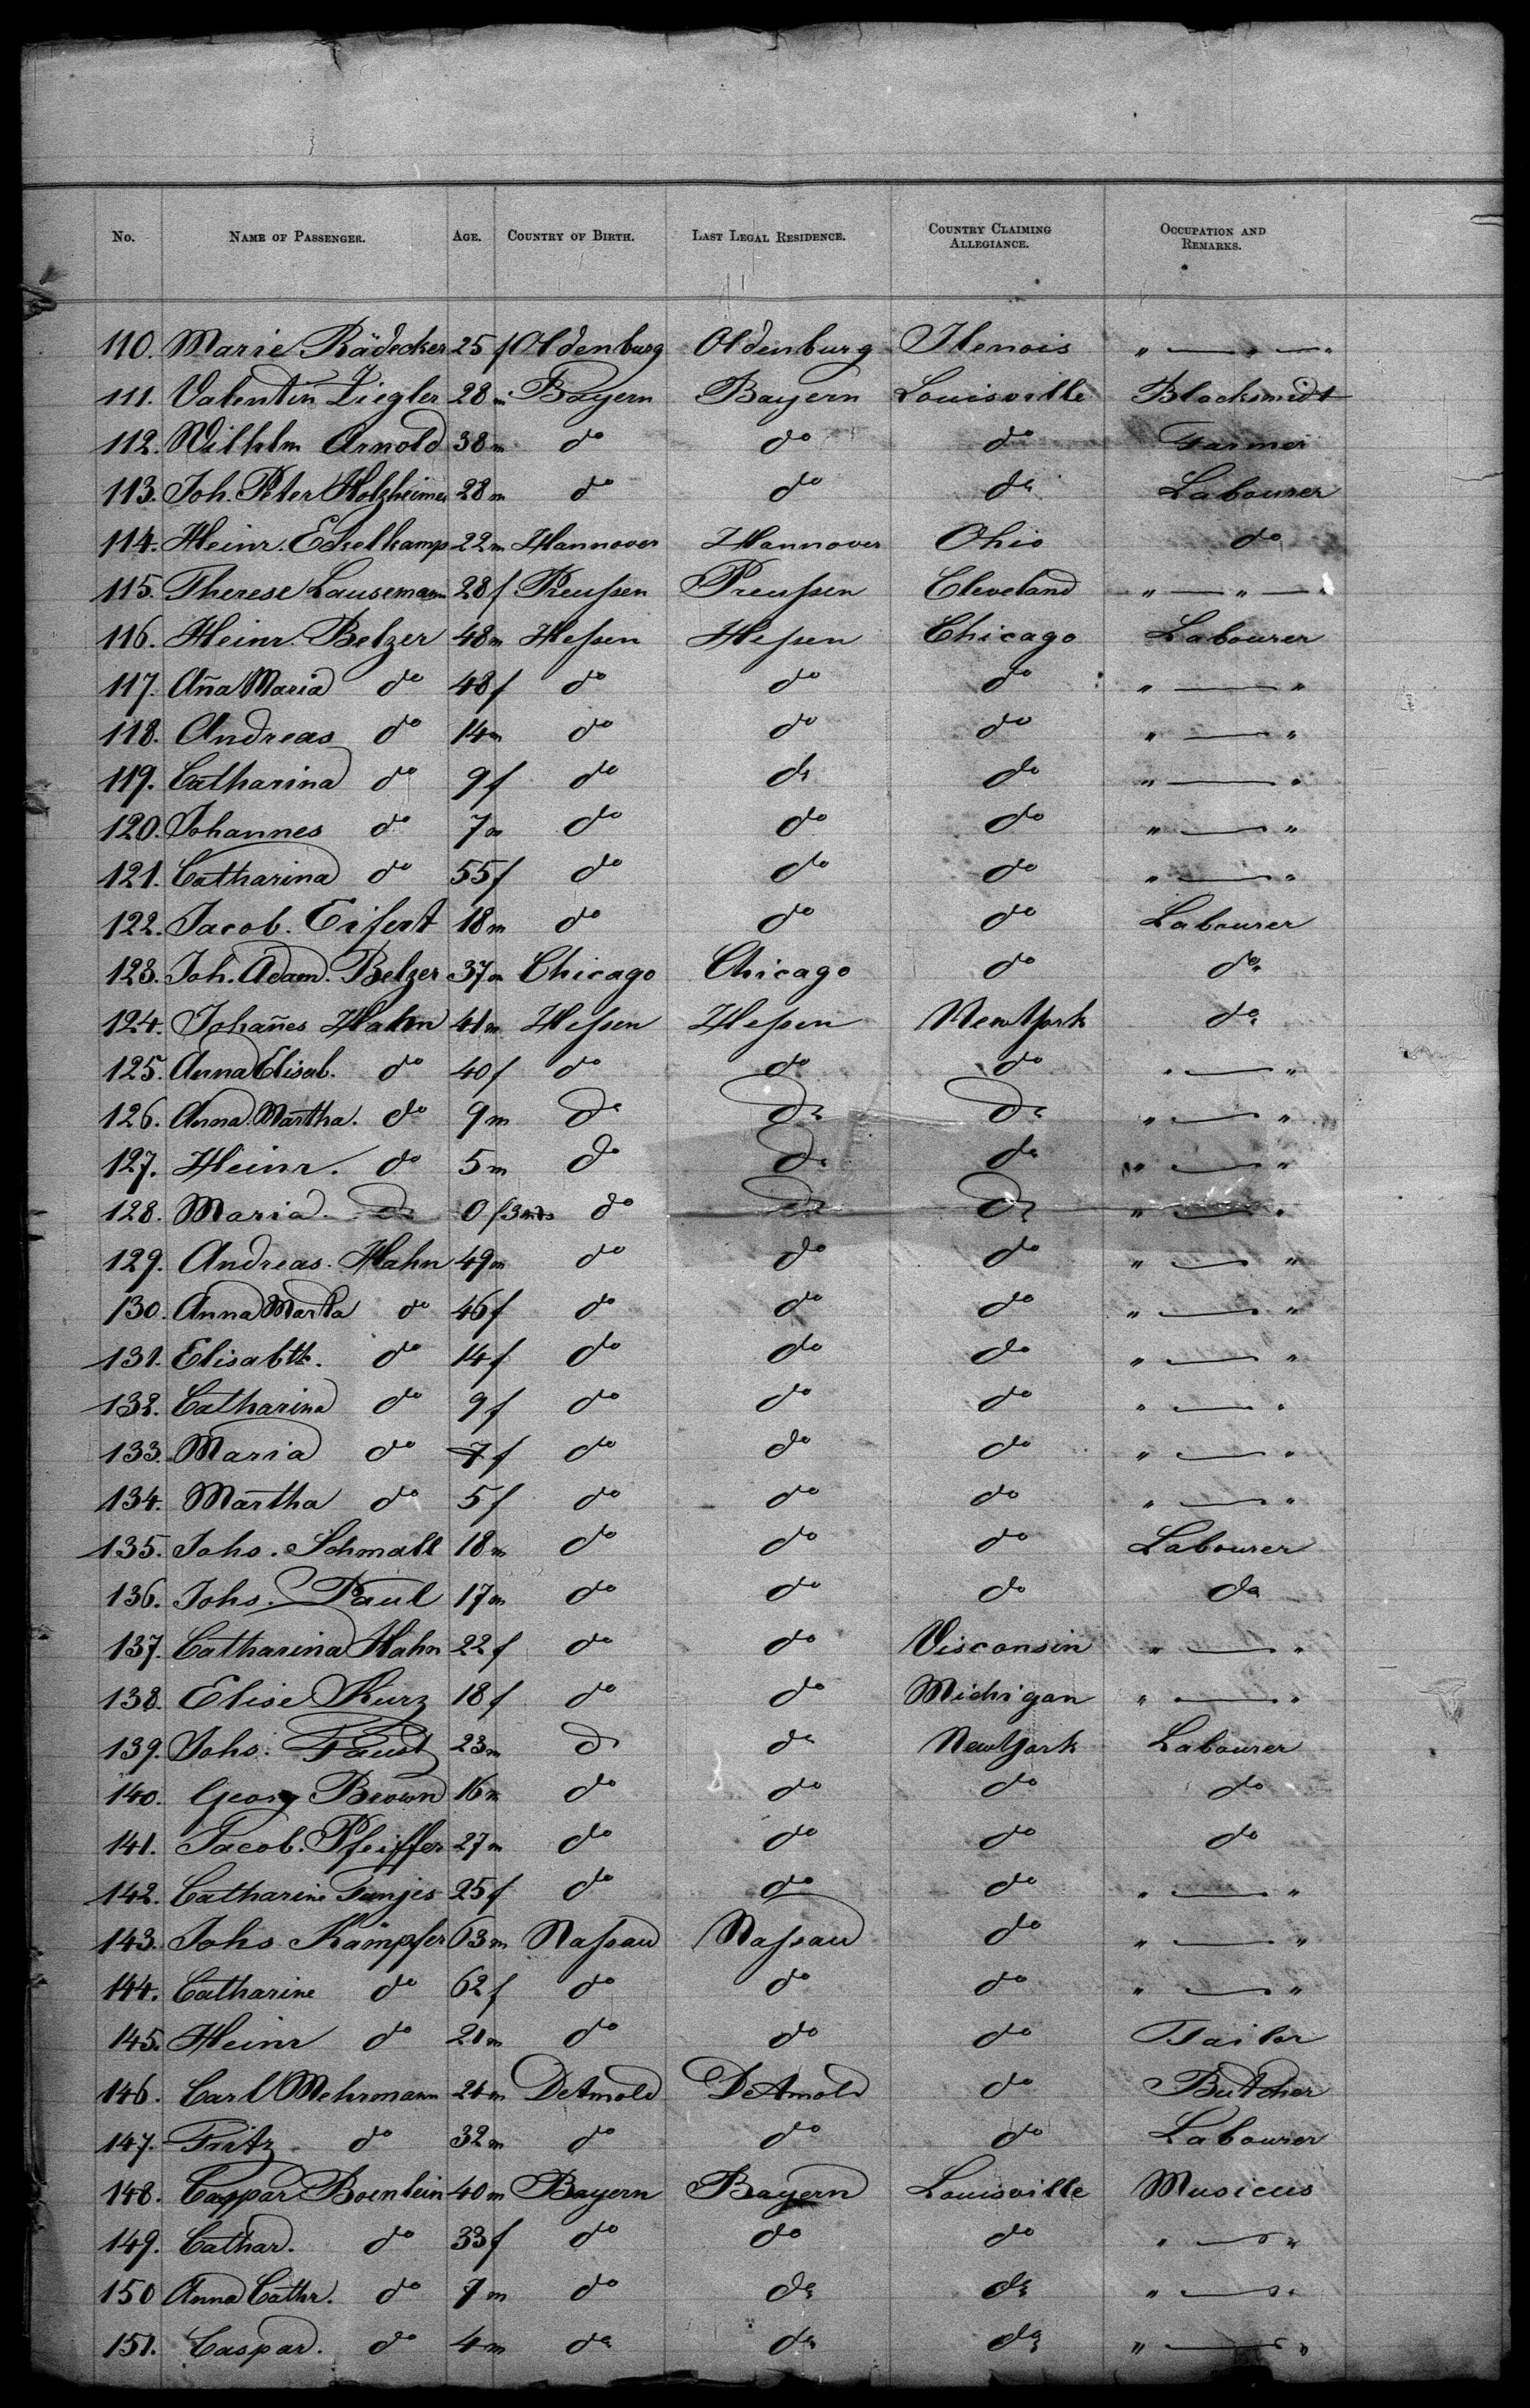 No. NAME OF PASSENGER. AGE. COUNTRY OF BIRTH. LAST LEGAL RESIDENCE. COUNTRY CLAIMING ALLEGIANCE. OCCUPATION AND REMARKS.
110. Marie Rädecker 25 f Oldenburg Oldenburg Ilenois " — " — "
111. Valentin Ziegler 28 m Bayern Bayern Louisville Blacksmidt
112. Wilhlm Arnold 38 m do do do Farmer
113. Joh. Peter Holzheimer 28 m do do do Labourer
114. Heinr. Eckelkamp 22 m Hannover Hannover Ohio do
115. Therese Lausemann 28 f Preußen Preußen Cleveland " — " —
116. Heinr. Belzer 48 m Heßen Heßen Chicago Labourer
117. Aña Maria do 48 f do do do " — "
118. Andreas do 14 m do do do " — "
119. Catharina do 9 f do do do " — "
120. Johannes do 7 m do do do " — "
121. Catharina do 55 f do do do " — "
122. Jacob. Eifert 18 m do do do Labourer
123. Joh. Adam. Belzer 37 m Chicago Chicago do do
124. Johañes Hahn 41 m Heßen Heßen New York do
125. Anna Elisab. do 40 f do do do " — "
126. Anna Martha. do 9 m do do do " — "
127. Heinr. do 5 m do do do " — "
128. Maria do 0 f 3 mts do do do " — "
129. Andreas. Hahn 49 m do do do " — "
130. Anna Marta do 46 f do do do " — "
131. Elisabth. do 14 f do do do " — "
132. Catharina do 9 f do do do " — "
133. Maria do 7 f do do do " — "
134. Martha do 5 f do do do " — "
135. Johs. Schmall 18 m do do do Labourer
136. Johs. Paul 17 m do do do do
137. Catharina Hahn 22 f do do Visconsin " — "
138. Elise Kurz 18 f do do Michigan " — "
139. Johs. Faust 23 m do do New York Labourer
140. Georg Brown 16 m do do do do
141. Jacob. Pfeiffer 27 m do do do do
142. Catharine Tunjes 25 f do do do " — "
143. Johs Kämpfer 63 m Naßau Naßau do " — "
144. Catharine do 62 f do do do " — "
145. Heinr do 21 m do do do Tailor
146. Carl Mehrmann 24 m Detmold Detmold do Butcher
147. Fritz do 32 m do do do Labourer
148. Caspar Boenlein 40 m Bayern Bayern Louisville Musicus
149. Cathar. do 33 f do do do " — "
150 Anna Cathr. do 7 m do do do " — "
151. Caspar. do 4 m do do do " — "